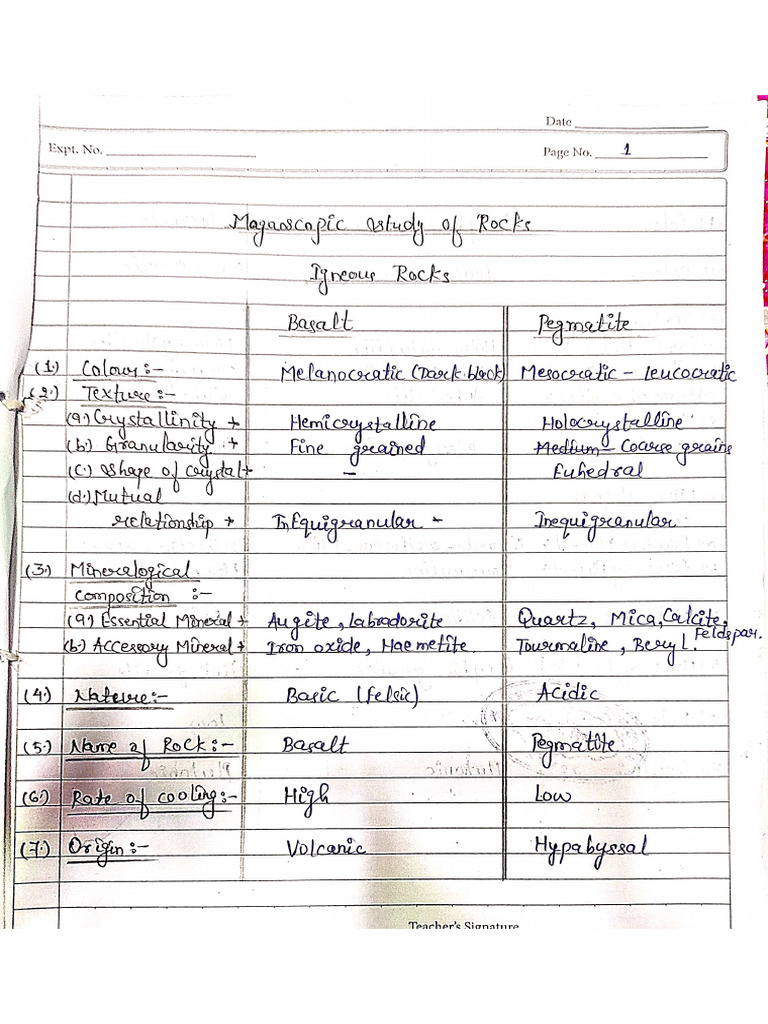 Date
Expt. No.
Page No. 1
Magaoscopic study of Rocks
Igneous Rocks
Basalt Pegmatite
(1.) Colour :- Melanocratic (Dark black) Mesocratic - Leucocratic
(2.) Texture :-
(a) Crystallinity → Hemicrystalline Holocrystalline
(b.) Granularity → Fine grained Medium - Coarse grains
(c.) Shape of crystal → - Euhedral
(d.) Mutual
relationship → InEquigranular - Inequigranular
(3.) Mineralogical
composition :-
(a) Essential Mineral → Augite, Labradorite Quartz, Mica, Calcite, Feldspar.
(b.) Accessory Mineral → Iron oxide, Haemetite Tourmaline, Beryl.
(4.) Nature :- Basic (felsic) Acidic
(5.) Name of Rock :- Basalt Pegmatite
(6.) Rate of cooling :- High Low
(7.) Origin :- Volcanic Hypabyssal
Teacher's Signature